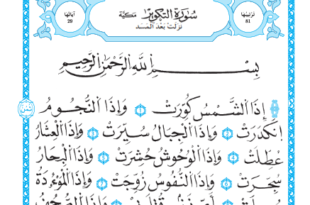 ترتيبها
81
سورة التكوير مكية
نزلت بعد المسد
آياتها
29
بِسْمِ اللَّهِ الرَّحْمَٰنِ الرَّحِيمِ
إِذَا الشَّمْسُ كُوِّرَتْ ۝ وَإِذَا النُّجُومُ
انْكَدَرَتْ ۝ وَإِذَا الْجِبَالُ سُيِّرَتْ ۝ وَإِذَا الْعِشَارُ
عُطِّلَتْ ۝ وَإِذَا الْوُحُوشُ حُشِرَتْ ۝ وَإِذَا الْبِحَارُ
سُجِّرَتْ ۝ وَإِذَا النُّفُوسُ زُوِّجَتْ ۝ وَإِذَا الْمَوْءُودَةُ